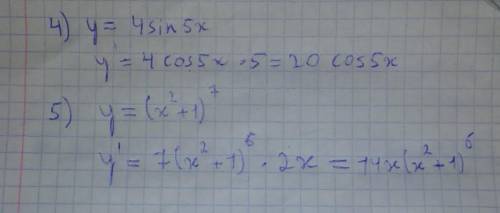 4) y = 4sin5x
y' = 4 cos5x · 5 = 20 cos5x
5) y = (x² + 1)⁷
y' = 7(x² + 1)⁶ · 2x = 14x(x² + 1)⁶